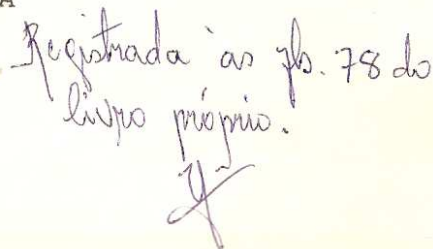 A
Registrada às fls. 78 do
livro próprio.